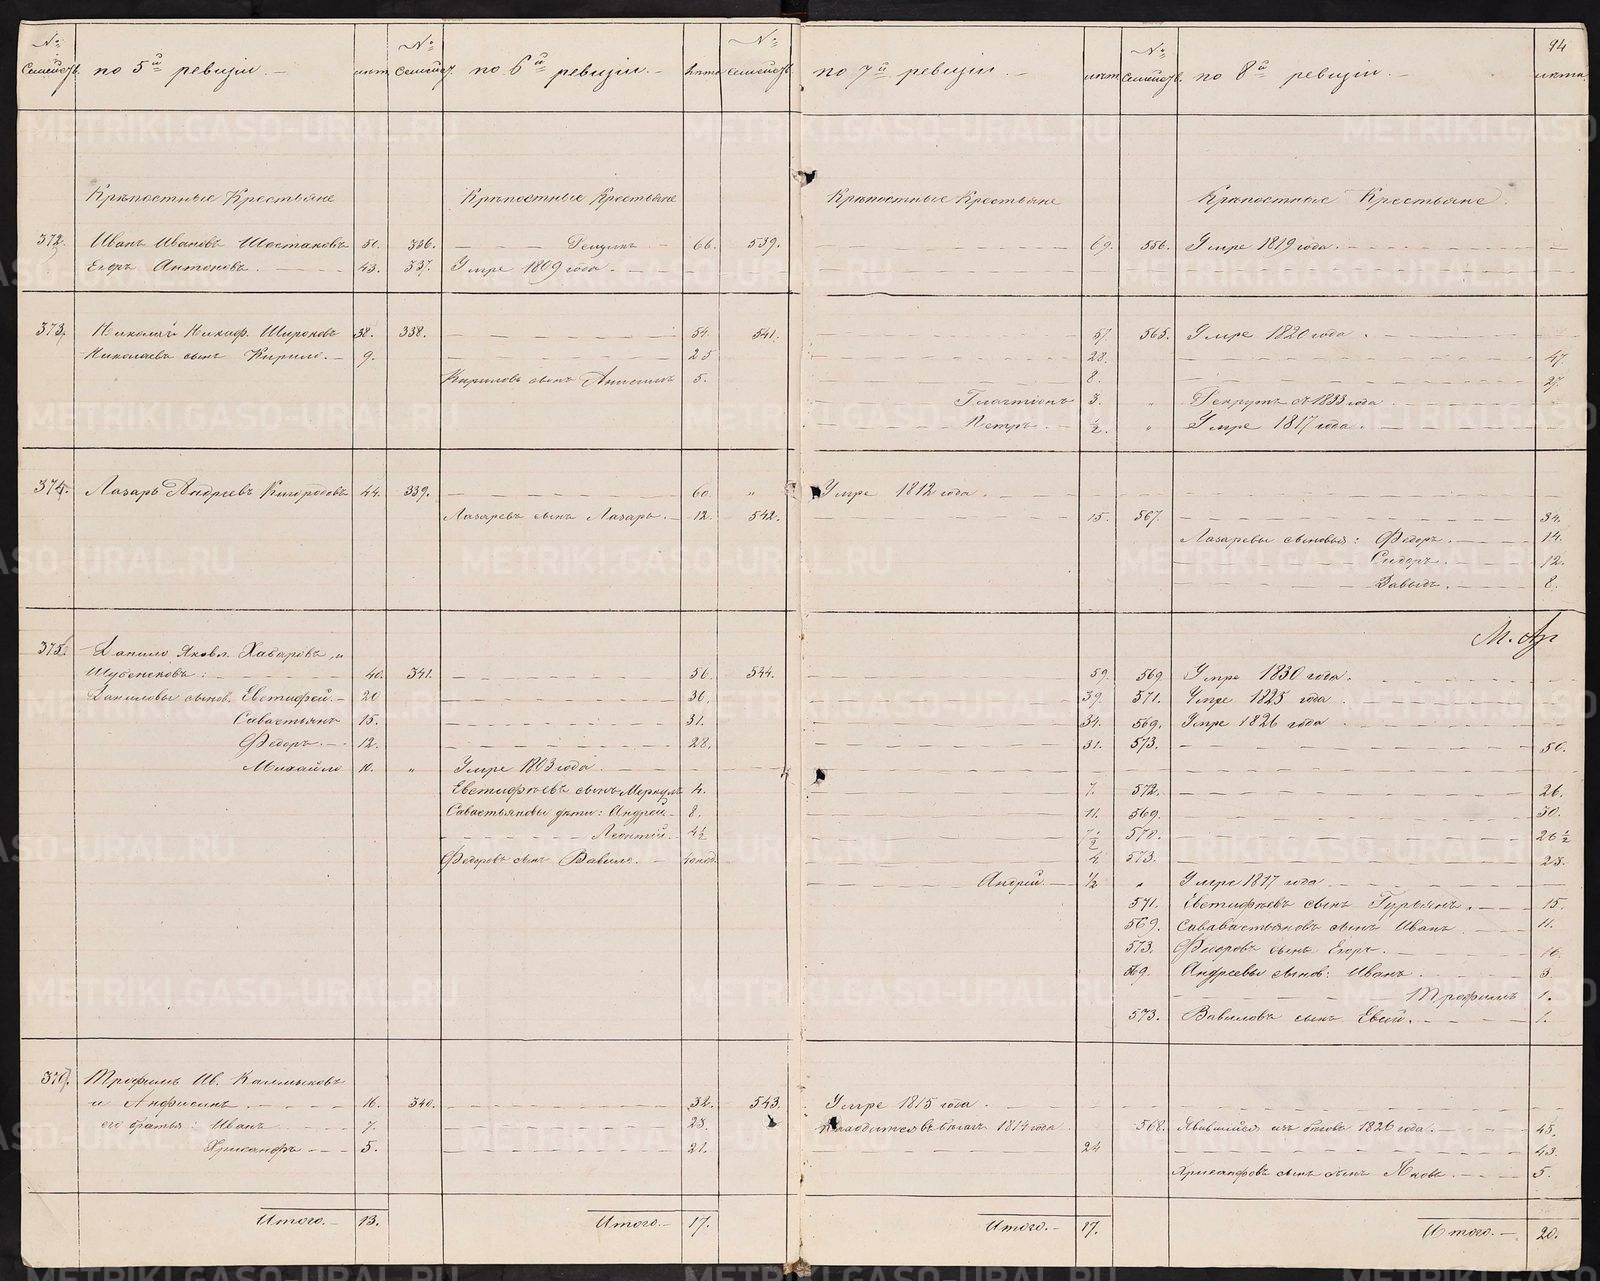 94
№ Семейств. по 5й ревизiи. — лѣтъ № Семейст. по 6й ревизiи. — лѣта № семейств.
по 7й ревизiи. — лѣтъ № Семейств. по 8й ревизiи. — лѣта.
Крѣпостные Крестьяне Крѣпостные Крестьяне Крѣпостные Крестьяне Крѣпостные Крестьяне.
372. Иванъ Ивановъ Шестаковъ 50. 336. — 66. 539. — 69. 556. Умре 1819 года. —
Егоръ Антоновъ. — 43. 337. Умре 1809 года. —
373. Николай Никиф. Широковъ 38. 338. — 54. 541. — 57. 565. Умре 1820 года. —
Николаевъ сынъ Кирило. — 9. — 25 — 28. — 47.
Кириловъ сынъ Анисимъ 5. — 8. — 27.
Галактiонъ 3. " Рекрутъ съ 1833 года
Петръ. — ½. " Умре 1817 года. —
374. Лазарь Андреевъ 44. 339. — 60. " Умре 1812 года. —
Лазаревъ сынъ Лазарь. — 12. 542. — 15. 567. — 34.
Лазаревы сыновья: Федоръ. — 14.
Сидоръ. — 12.
Давыдъ. — 8.
375. Данило Яковл. Хабаровъ, и
Шубенковъ: — 40. 341. — 56. 544. — 59. 569 Умре 1830 года. —
Даниловы сынов. Евстифей. — 20 — 36. — 39. 571. Умре 1825 года
Савастьянъ 15. — 31. — 34. 569. Умре 1826 года
Федоръ. — 12. — 28. — 31. 573. — 50.
Михайло 10. " Умре 1803 года. —
Евстифѣевъ сынъ Меркулъ 4. — 7. 572. — 26.
Савастьяновы дѣти: Андрей. — 8. — 11. 569. — 30.
Леонтiй. — 4½ — 7½ 570. — 26½
Федоровъ сынъ Вавило. — 40 нед. — 4 573. — 23.
Андрей. — ½ " Умре 1817 года
571. Евстифѣевъ сынъ Гурьянъ. — 15.
569. Савастьяновъ сынъ Иванъ 11.
573. Федоровъ сынъ Егоръ. 10.
569. Андреевы сынов: Иванъ. — 3.
Трофимъ 1.
573. Вавиловъ сынъ — 1.
376. Трофимъ Ив. Калмыковъ
и Анфисинъ — 16. 340. — 32. 543. Умре 1815 года. —
его братья: Иванъ — 7. — 23. находится въ бѣгахъ 1814 года 568. Явившiйся изъ бѣговъ 1826 года. — 45.
Хрисанфъ — 5. — 21. — 24 — 43.
Хрисанфовъ сынъ Яковъ. — 5.
Итого. — 13. Итого. — 17. Итого. — 17. Итого. — 20.
METRIKI.GASO-URAL.RU